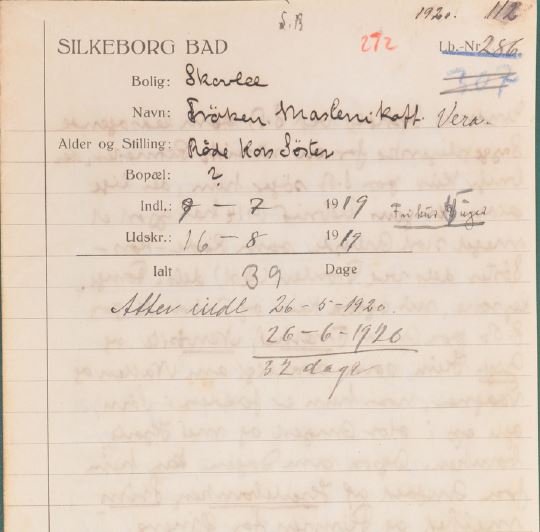 S.B 1920. 112
SILKEBORG BAD 272 Lb.-Nr 286.
307
Bolig: Skovlee
Navn: Frøken Maslenikoff. Vera.
Alder og Stilling: Røde Kors Søster
Bopæl: ?
Indl.: 9 – 7 1919 Frikur Uger
Udskr.: 16 – 8 1919
Ialt 39 Dage
Atter indl 26-5-1920.
26-6-1920
32 dage